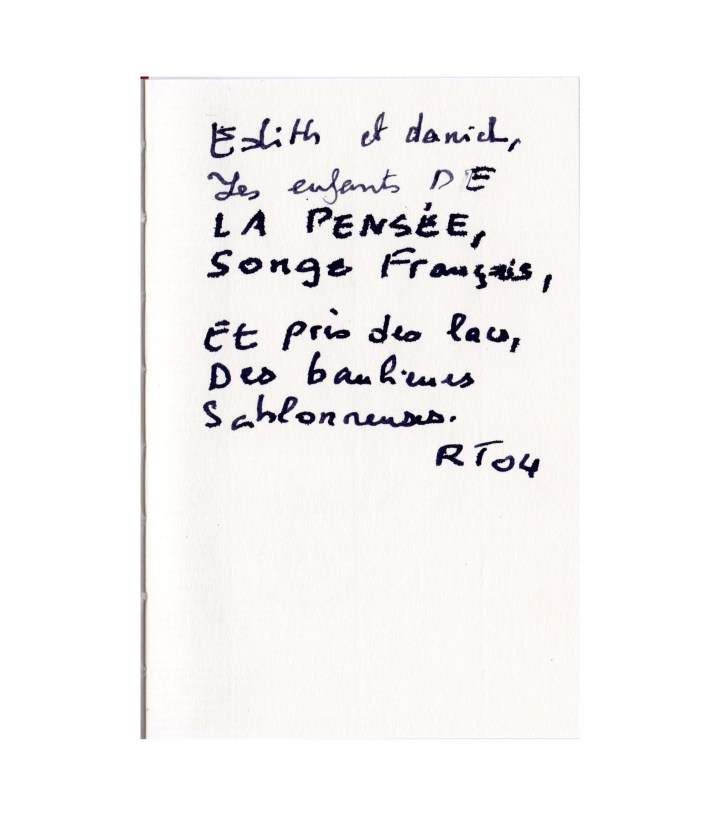 Edith et daniel,
Les enfants DE
LA PENSÉE,
Songe Français,
Et près des lacs,
Des banlieues
Sablonneuses.
RT04